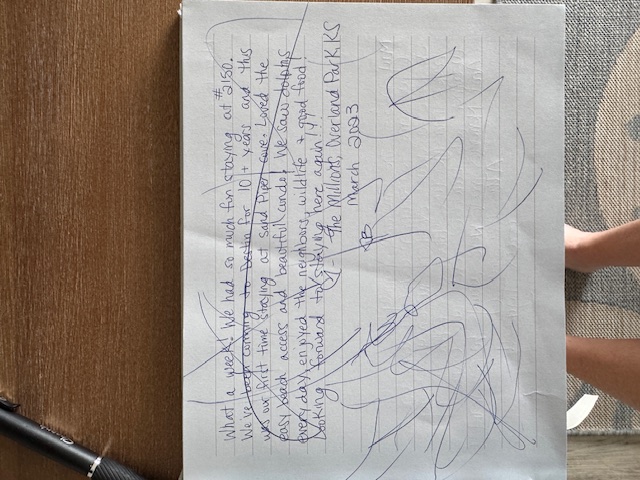 What a week! We had so much fun staying at #2150.
We've been coming to Destin for 10+ years and this
was our first time staying at Sand Piper Cove. Loved the
easy beach access and beautiful condo! We saw dolphins
every day, enjoyed the neighbors, wildlife + good food!
Looking forward to staying here again!!!
- The Millions, Overland Park, KS
March 2023